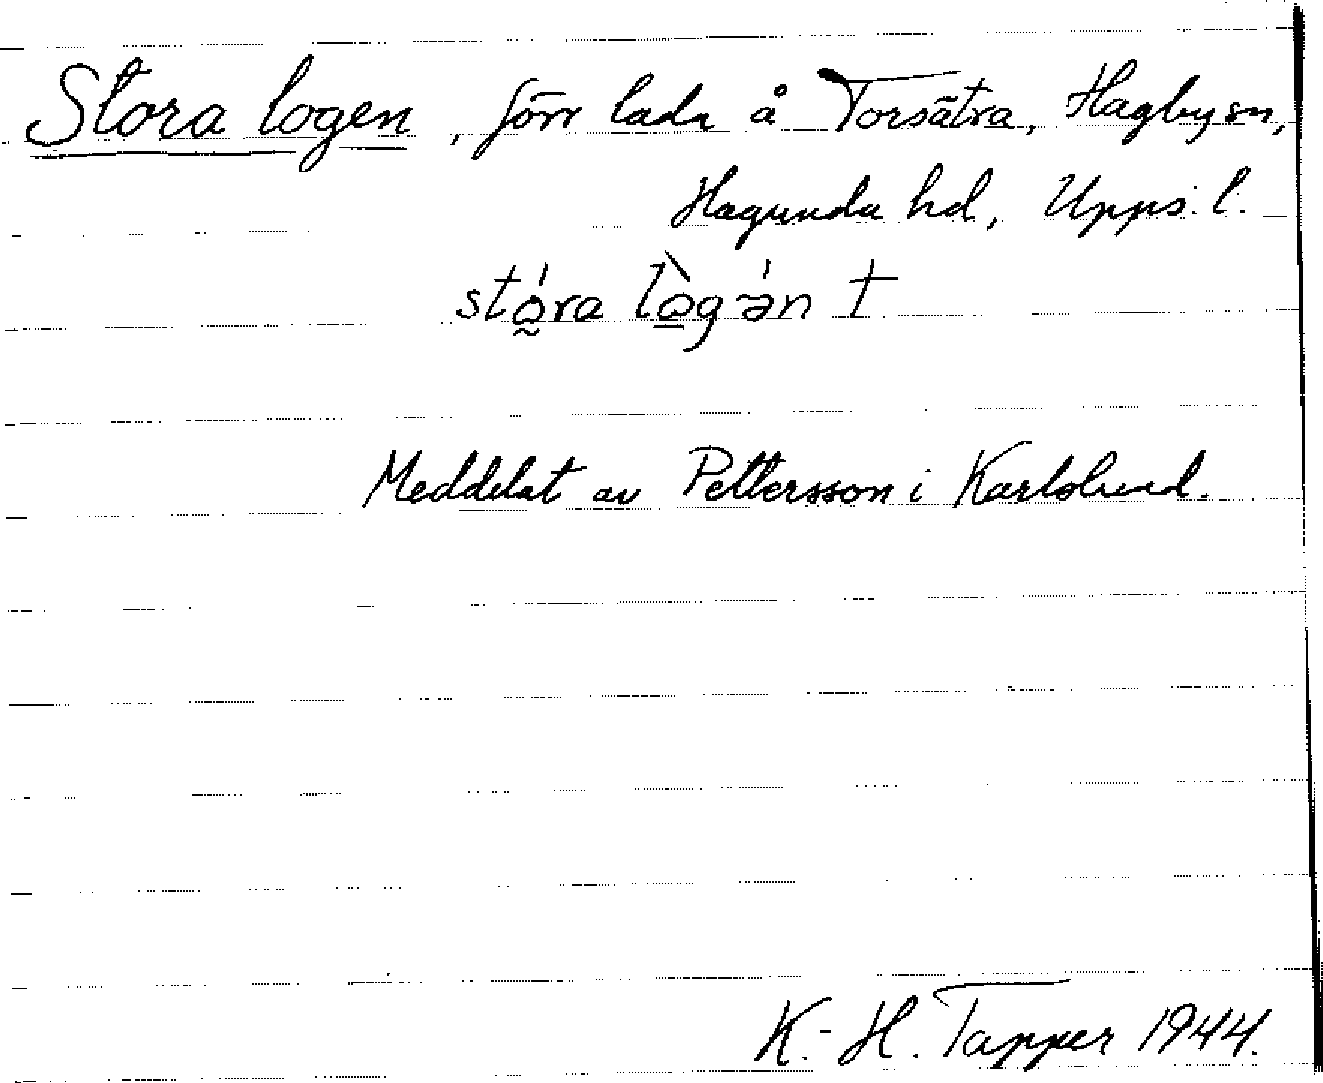 Stora logen, förr lada å Torsätra, Hagby sn,
Hagunda hd, Upps. l.
stó̰ra lò̱g-ə́n †
Meddelat av Pettersson i Karlslund.
K.-H. Tapper 1944.